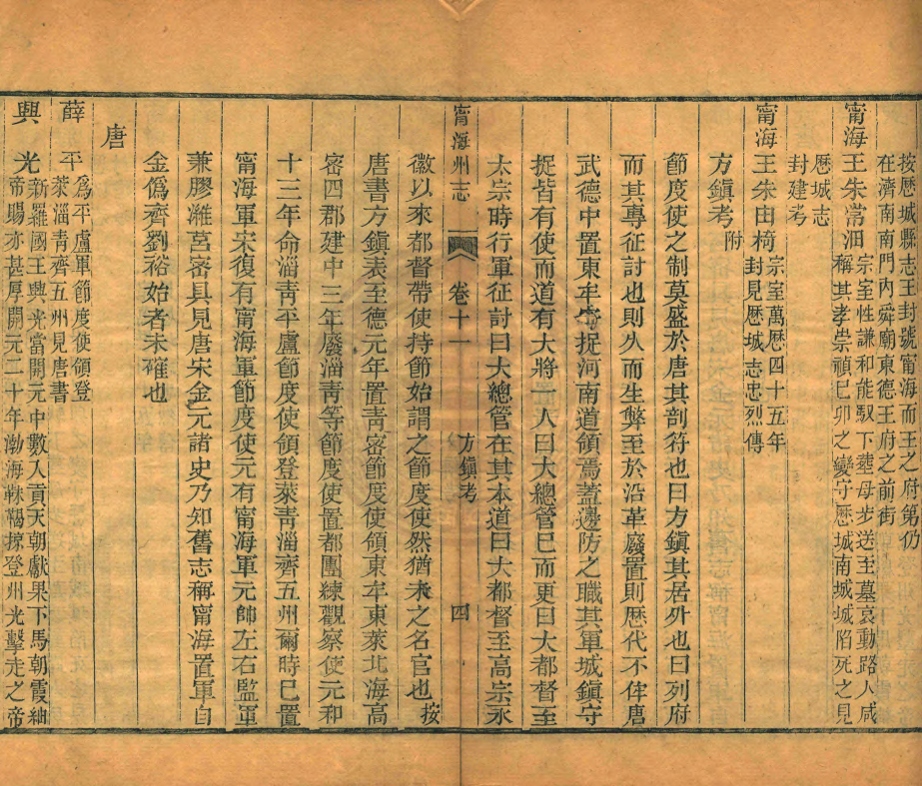 按歷城縣志王封號甯海而王之府第仍
在濟南南門內舜廟東德王府之前街
甯海王朱常沺
宗室性謙和能馭下薨母步送至墓哀動路人咸
稱其孝崇禎巳卯之變守歷城南城城陷死之見
歷城志
封建考
甯海王朱由椅
宗室萬曆四十五年
封見歷城志忠烈傳
方鎮考附
節度使之制莫盛於唐其剖符也曰方鎮其居外也曰列府
而其專征討也則久而生弊至於沿革廢置則歷代不侔唐
武德中置東牟守捉河南道領焉蓋邊防之職其軍城鎮守
捉皆有使而道有大將一人曰大總管已而更曰大都督至
太宗時行軍征討曰大總管在其本道曰大都督至高宗永
甯海州志
卷十一
方鎮考
四
徽以來都督帶使持節始謂之節度使然猶未之名官也按
唐書方鎮表至德元年置青密節度使領東牟東萊北海高
密四郡建中三年廢淄青等節度使置都團練觀察使元和
十三年命淄青平盧節度使領登萊青淄齊五州爾時已置
甯海軍宋復有甯海軍節度使元有甯海軍元帥左右監軍
兼膠濰莒密具見唐宋金元諸史乃知舊志稱甯海置軍自
金偽齊劉裕始者未確也
唐
薛平
為平盧軍節度使領登
萊淄青齊五州見唐書
興光
新羅國王興光當開元中數入貢天朝獻果下馬朝霞紬
帝賜亦甚厚開元二十年渤海靺鞨掠登州光擊走之帝